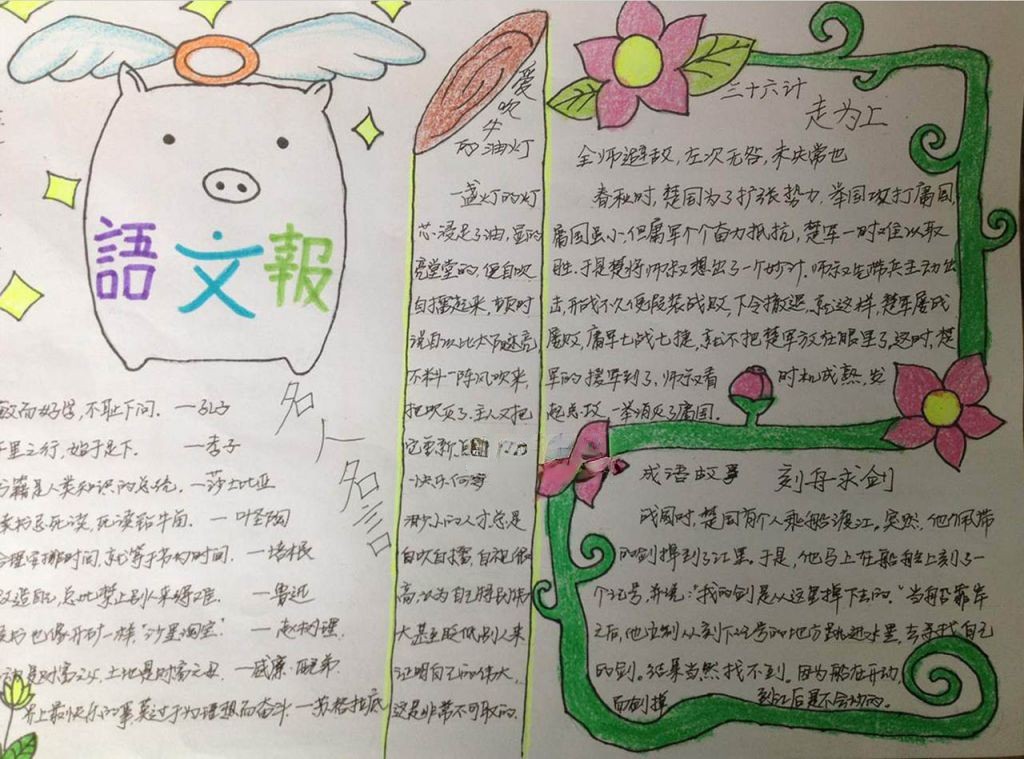 語文報
名人名言
敏而好学，不耻下问。—孔子
千里之行，始于足下。—李子
书籍是人类知识的总统。—莎士比亚
读书忌死读，死读钻牛角。—叶圣陶
合理安排时间，就等于节约时间。—培根
—鲁迅
读书也像开矿一样"沙里淘金"。—赵树理
劳动是财富之父，土地是财富之母。—威廉·配第
世上最快乐的事莫过于为理想而奋斗。—苏格拉底
爱吹牛
的油灯
一盏灯的灯
芯浸足了油，显的
亮堂堂的，便自吹
自擂起来，顿时
说自以比太阳还亮
不料一阵风吹来，
把吹灭了。主人又把
它重新
渺小的人才总是
自吹自擂，自视
高，以为自己
大甚至贬低别人来
证明自己的伟大，
这是非常不可取的。
三十六计
走为上
全师避敌，左次无咎，未失常也
春秋时，楚国为了扩张势力，举国攻打庸国，
庸国虽小，但庸军个个奋力抵抗，楚军一时难以取
胜。于是楚将师叔想出了一个妙计。师叔先带兵主动出
击，开战不久便假装战败，下令撤退。就这样，楚军屡战
屡败，庸军七战七捷，就不把楚军放在眼里了。这时，楚
军的援军到了，师叔看时机成熟，发
起总攻，一举消灭了庸国。
成语故事 刻舟求剑
战国时，楚国有个人乘船渡江。突然，他佩带
的剑掉到了江里。于是，他马上在船舷上刻了一
个记号，并说："我的剑是从这里掉下去的。"当船靠岸
之后，他立刻从刻下记号的地方跳进水里，去寻找自己
的剑。结果当然找不到。因为船在开动，
而剑掉到江后是不会动的。